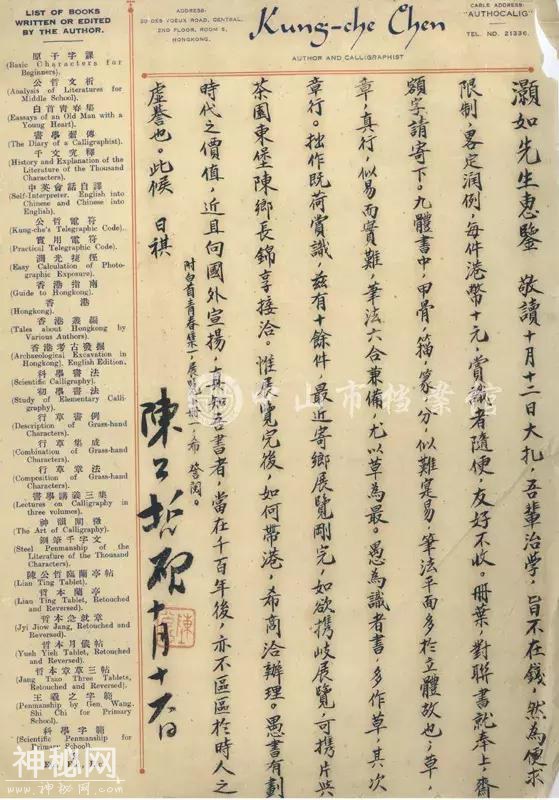 LIST OF BOOKS
WRITTEN OR EDITED
BY THE AUTHOR.
原子字課
(Basic Characters for
Beginners).
公哲文析
(Analysis of Literatures for
Middle School).
白首青春集
(Eassays of an Old Man with a
Young Heart).
書學剳傳
(The Diary of a Calligraphist).
千文究釋
(History and Explanation of the
Literature of the Thousand
Characters).
中英會話自譯
(Self-Interpreter. English into
Chinese and Chinese into
English).
公哲電符
(Kung-che's Telegraphic Code).
實用電符
(Practical Telegraphic Code).
測光捷徑
(Easy Calculation of Photo-
graphic Exposure).
香港指南
(Guide to Hongkong).
香港
(Hongkong).
香港叢編
(Tales about Hongkong by
Various Authors).
香港考古發掘
(Archaeological Excavation in
Hongkong). English Edition.
科學書法
(Scientific Calligraphy).
初學書法
(Study of Elementary Calli-
graphy).
行草書例
(Description of Grass-hand
Characters).
行草集成
(Combination of Grass-hand
Characters).
行草章法
(Composition of Grass-hand
Characters).
書學講義三集
(Lectures on Calligraphy in
three volumes).
神韻闡微
(The Art of Calligraphy).
鋼筆千字文
(Steel Penmanship of the
Literature of the Thousand
Characters).
陳公哲臨蘭亭帖
(Lian Ting Tablet).
哲本蘭亭
(Lian Ting Tablet, Retouched
and Reversed).
哲本急就章
(Jyi Jiow Jang, Retouched and
Reversed).
哲本月儀帖
(Yueh Yieh Tablet, Retouched
and Reversed).
哲本章草三帖
(Jang Tsao Three Tablets,
Retouched and Reversed).
王羲之字範
(Penmanship by Gen. Wang
Shi Chi for Primary
School).
科學字範
(Scientific Penmanship for
Primary School).
ADDRESS:
20 DES VOEUX ROAD, CENTRAL,
2ND FLOOR, ROOM 5,
HONGKONG.
Kung-che Chen
AUTHOR AND CALLIGRAPHIST
CABLE ADDRESS:
"AUTHOCALIG"
TEL. NO. 21336.
灝如先生惠鑒 敬讀十月十二日大札,吾輩治學,旨不在錢,然為便求
限制,畧定潤例,每件港幣十元,賞識者隨便,友好不收。冊葉,對聯書就奉上,齋
額字請寄下。九體書中,甲骨,籀,篆,分,似難寔易,筆法平面多於立體故也;草,
章,真行,似易而實難,筆法六合兼備,尤以草為最。愚為識者書,多作草,其次
章行。拙作既荷賞識,茲有十餘件,最近寄鄉展覽剛完,如欲携岐展覽,可携片與
茶園東堡陳鄉長錦享接洽。惟展覽完後,如何帶港,希商洽辦理。愚書有劃
時代之價值,近且向國外宣揚,真知吾書者,當在千百年後,亦不區區於時人之
虛譽也。此候 日祺
附白首青春集一,展覽冊一,希詧閱。
陳公哲硯十月十六日
山市档案館
神秘网
www.shenmiw.com